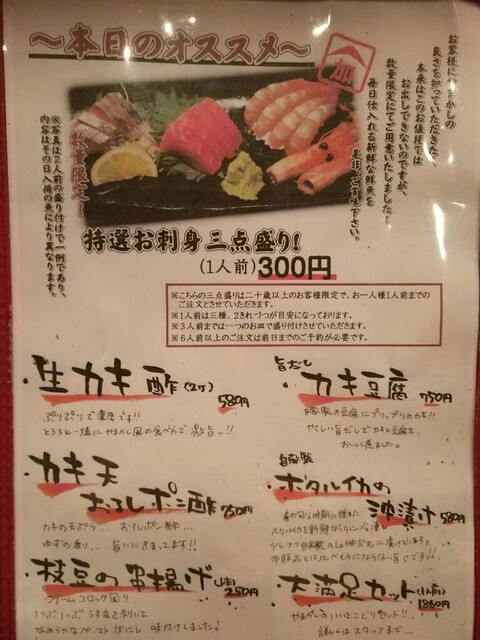 ～本日のオススメ～
加
お客様にやまかしの
良さを知っていただきたく
本来はこのお値段では
お出しできないのですが、
数量限定にてご用意いたしました！
毎日仕入れる新鮮な鮮魚を
是非、ご賞味下さい。
数量限定！
※写真は2人前の盛り付けで一例であり、
内容はその日入荷の魚により異なります。
特選お刺身三点盛り!
(1人前)300円
※こちらの三点盛りは二十歳以上のお客様限定で、お一人様1人前までの
ご注文とさせていただきます。
※1人前は三種、2きれづつが目安になっております。
※3人前までは一つのお皿で盛り付けさせていただきます。
※6人前以上のご注文は前日までのご予約が必要です。
・生カキ酢(2ケ) 580円
ぷりぷりで濃厚です!!
とろろと一緒にやまかし風の食べ方で激旨ッ!!
旨だし
・カキ豆腐 750円
豚製の豆腐にプリップリのカキ!!
やさしい旨だしでカキと豆腐を
おいしく煮ました。
・カキ天
おろしポン酢 750円
カキの天ぷら… おろしポン酢…
ゆずの香り… 旨いにきまってます!!
自家製
・ホタルイカの
沖漬け 580円
・枝豆の串揚げ(1本) 250円
クリームコロッケ風!!
なめらかなペースト状にし 味付けしました!
・大満足カット(1人前) 1880円
やまかしのいいとこどりセット!!
詳しくはスタッフまで…